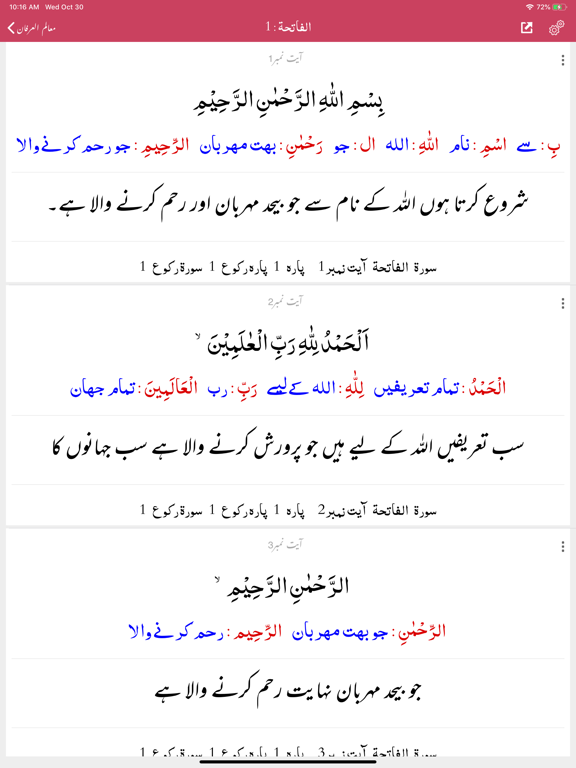 10:16 AM Wed Oct 30 72%
معالم العرفان الفاتحة : 1
آیت نمبر1
بِسْمِ اللّٰهِ الرَّحْمٰنِ الرَّحِیْمِ
بِ : سے اسْمِ : نام اللّٰهِ : الله ال : جو رَحْمٰنِ : بهت مهربان الرَّحِيمِ : جو رحم کرنے والا
شروع کرتا ہوں اللہ کے نام سے جو بیحد مہربان اور رحم کرنے والا ہے۔
سورة الفاتحة آیت نمبر1 پاره 1 پاره رکوع 1 سورة رکوع 1
آیت نمبر2
اَلْحَمْدُ لِلّٰهِ رَبِّ الْعٰلَمِیْنَ ۙ
الْحَمْدُ : تمام تعریفیں لِلّٰهِ : الله کے لیے رَبِّ : رب الْعَالَمِينَ : تمام جهان
سب تعریفیں اللہ کے لیے ہیں جو پرورش کرنے والا ہے سب جہانوں کا
سورة الفاتحة آیت نمبر2 پاره 1 پاره رکوع 1 سورة رکوع 1
آیت نمبر3
الرَّحْمٰنِ الرَّحِیْمِ ۙ
الرَّحْمٰنِ : جو بهت مهربان الرَّحِيم : رحم کرنے والا
جو بیحد مہربان نہایت رحم کرنے والا ہے
سورة الفاتحة آیت نمبر3 پاره 1 پاره رکوع 1 سورة رکوع 1